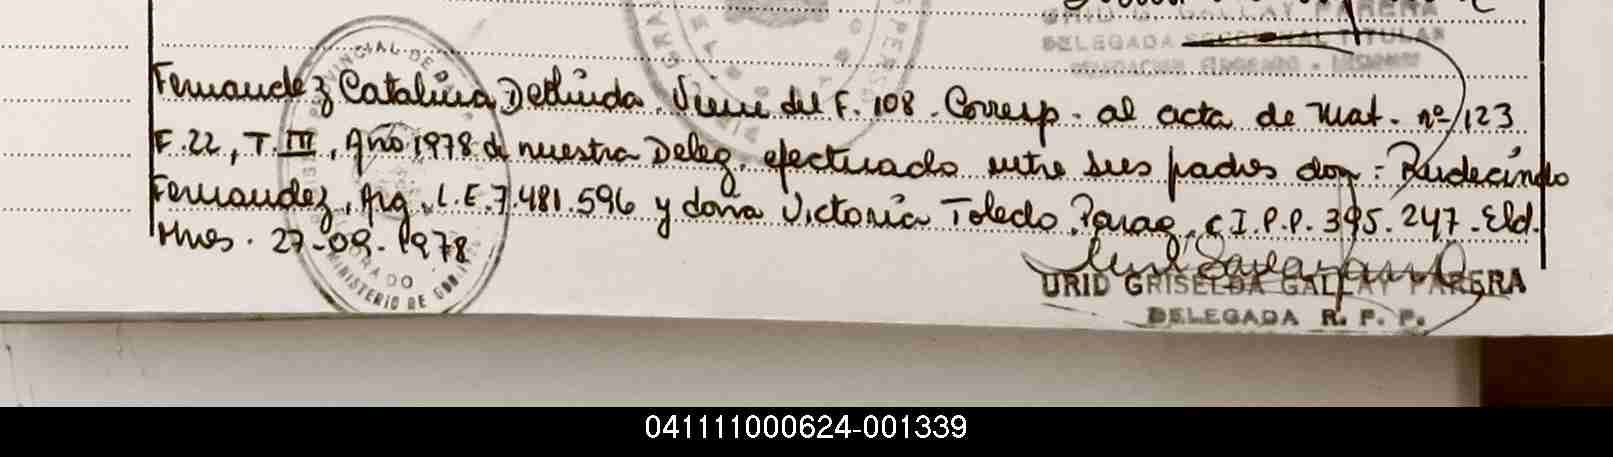 URID G. GALLAY PARERA
DELEGADA SECCIONAL TITULAR
PROVINCIAL DE
Fernandez Catalina Deolinda. Viene del F. 108. Corresp. al acta de Mat. nº 123
F. 22, T. III, Año 1978 de nuestra Deleg. efectuado entre sus padres don: Rudecindo
Fernandez, Arg. L.E. 7.481.596 y doña Victoria Toledo, Parag. C.I.P.P. 395.247. Eld.
Mnes. 27-09-1978
MINISTERIO DE GOB
URID GRISELDA GALLAY PARERA
DELEGADA R. P. P.
041111000624-001339